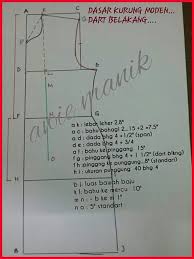 DASAR KURUNG MODEN...
DART BELAKANG....
anie manik
a k : lebar leher 2.8"
a c : bahu bahagi 2...15 ÷2 =7.5"
a d : dada bhg 4 + 1/2" (span)
d e : dada bhg 4 + 3/4
a f : bahu ke pinggang 15"
f g : pinggang bhg 4 + 1 1/2" (dart bling)
f h : pinggang ke punggung..8" (standart)
h i : ukuran punggung 40 bhg 4
b j : luas bawah baju
k l : bahu ke mercu 10"
m n : - b ke e 1"
n o : 5" standart
A
K
C
D
E
M
F
G
H
I
B
J